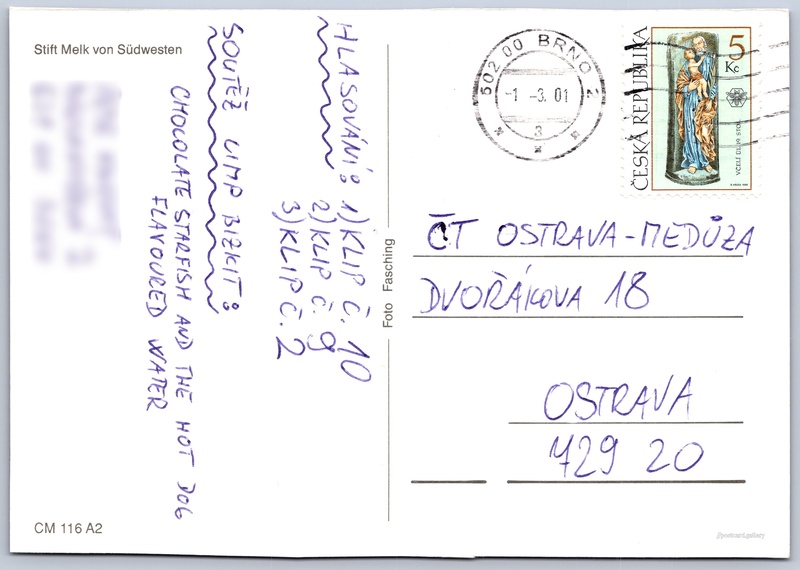 Stift Melk von Südwesten
HLASOVÁNÍ: 1) KLIP Č. 10
2) KLIP Č. 9
3) KLIP Č. 2
SOUTĚŽ LIMP BIZKIT:
CHOCOLATE STARFISH AND THE HOT DOG
FLAVOURED WATER
CM 116 A2
Foto Fasching
602 00 BRNO 2
-1. -3. 01
3
ČESKÁ REPUBLIKA
5
Kč
ČT OSTRAVA-MEDŮZA
DVOŘÁKOVA 18
OSTRAVA
729 20